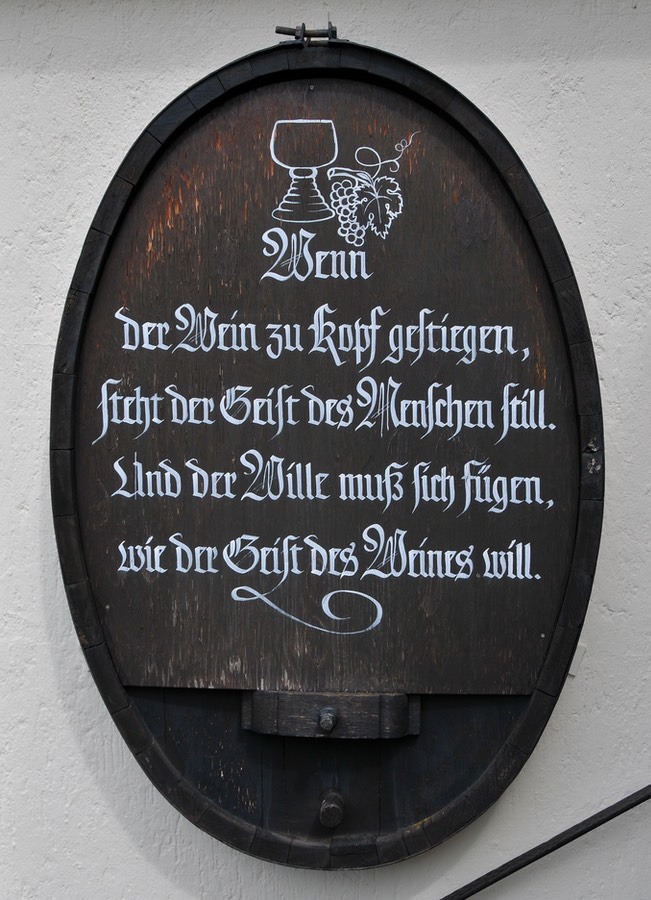 Wenn
der Wein zu Kopf gestiegen,
steht der Geist des Menschen still.
Und der Wille muß sich fügen,
wie der Geist des Weines will.